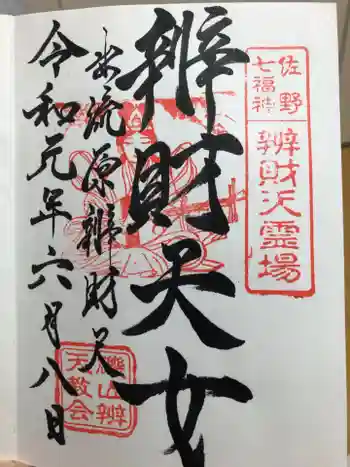 佐野
七福神
辨財天霊場
辨財天女
出流原辨財天
令和元年六月八日
磯山辨
天教会